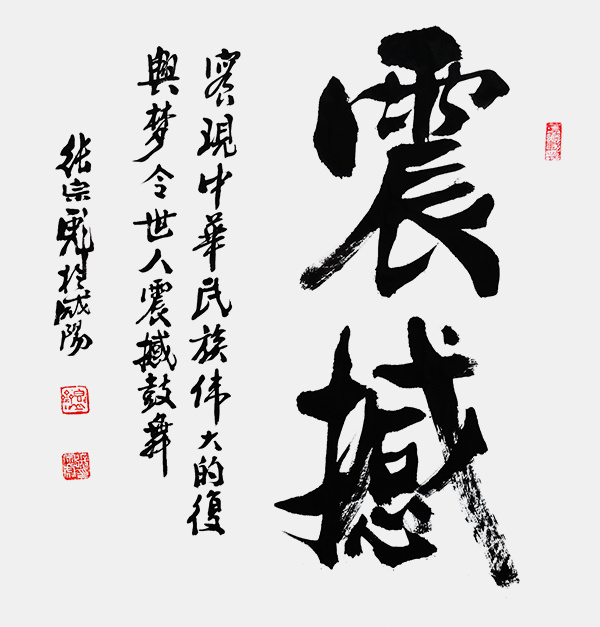 震撼
實現中華民族偉大的復
興梦令世人震撼鼓舞
張宗彪於咸陽